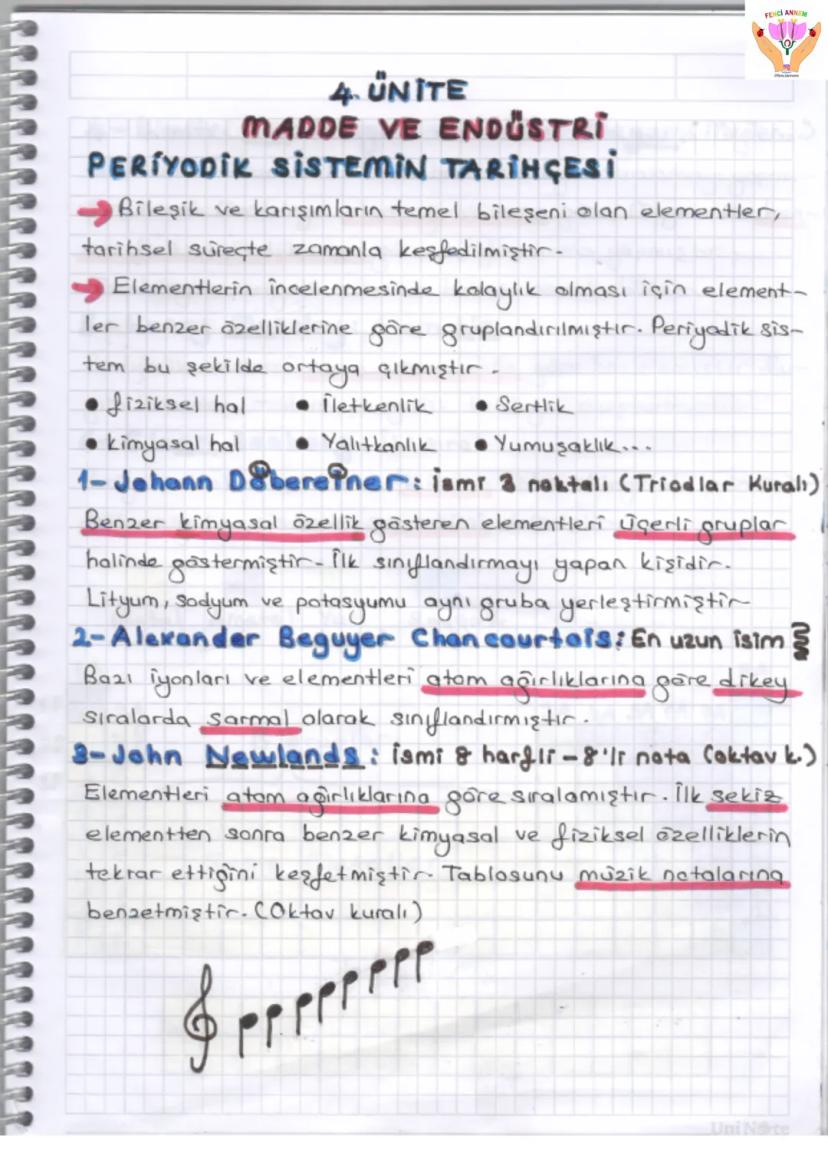 FENCİ ANNEM
4. ÜNİTE
MADDE VE ENDÜSTRİ
PERİYODİK SİSTEMİN TARİHÇESİ
→ Bileşik ve karışımların temel bileşeni olan elementler,
tarihsel süreçte zamanla keşfedilmiştir.
→ Elementlerin incelenmesinde kolaylık olması için element-
ler benzer özelliklerine göre gruplandırılmıştır. Periyodik sis-
tem bu şekilde ortaya çıkmıştır.
• fiziksel hal • İletkenlik • Sertlik
• kimyasal hal • Yalıtkanlık • Yumuşaklık...
1- Johann Döbereiner: ismi 3 noktalı (Triadlar Kuralı)
Benzer kimyasal özellik gösteren elementleri üçerli gruplar
halinde göstermiştir. İlk sınıflandırmayı yapan kişidir.
Lityum, sodyum ve potasyumu aynı gruba yerleştirmiştir
2- Alexander Beguyer Chancourtois: En uzun isim
Bazı iyonları ve elementleri atom ağırlıklarına göre dikey
sıralarda sarmal olarak sınıflandırmıştır.
3- John Newlands: ismi 8 harfli - 8'li nota (oktav k.)
Elementleri atom ağırlıklarına göre sıralamıştır. İlk sekiz
elementten sonra benzer kimyasal ve fiziksel özelliklerin
tekrar ettiğini keşfetmiştir. Tablosunu müzik notalarına
benzetmiştir. (Oktav kuralı)
UniNote